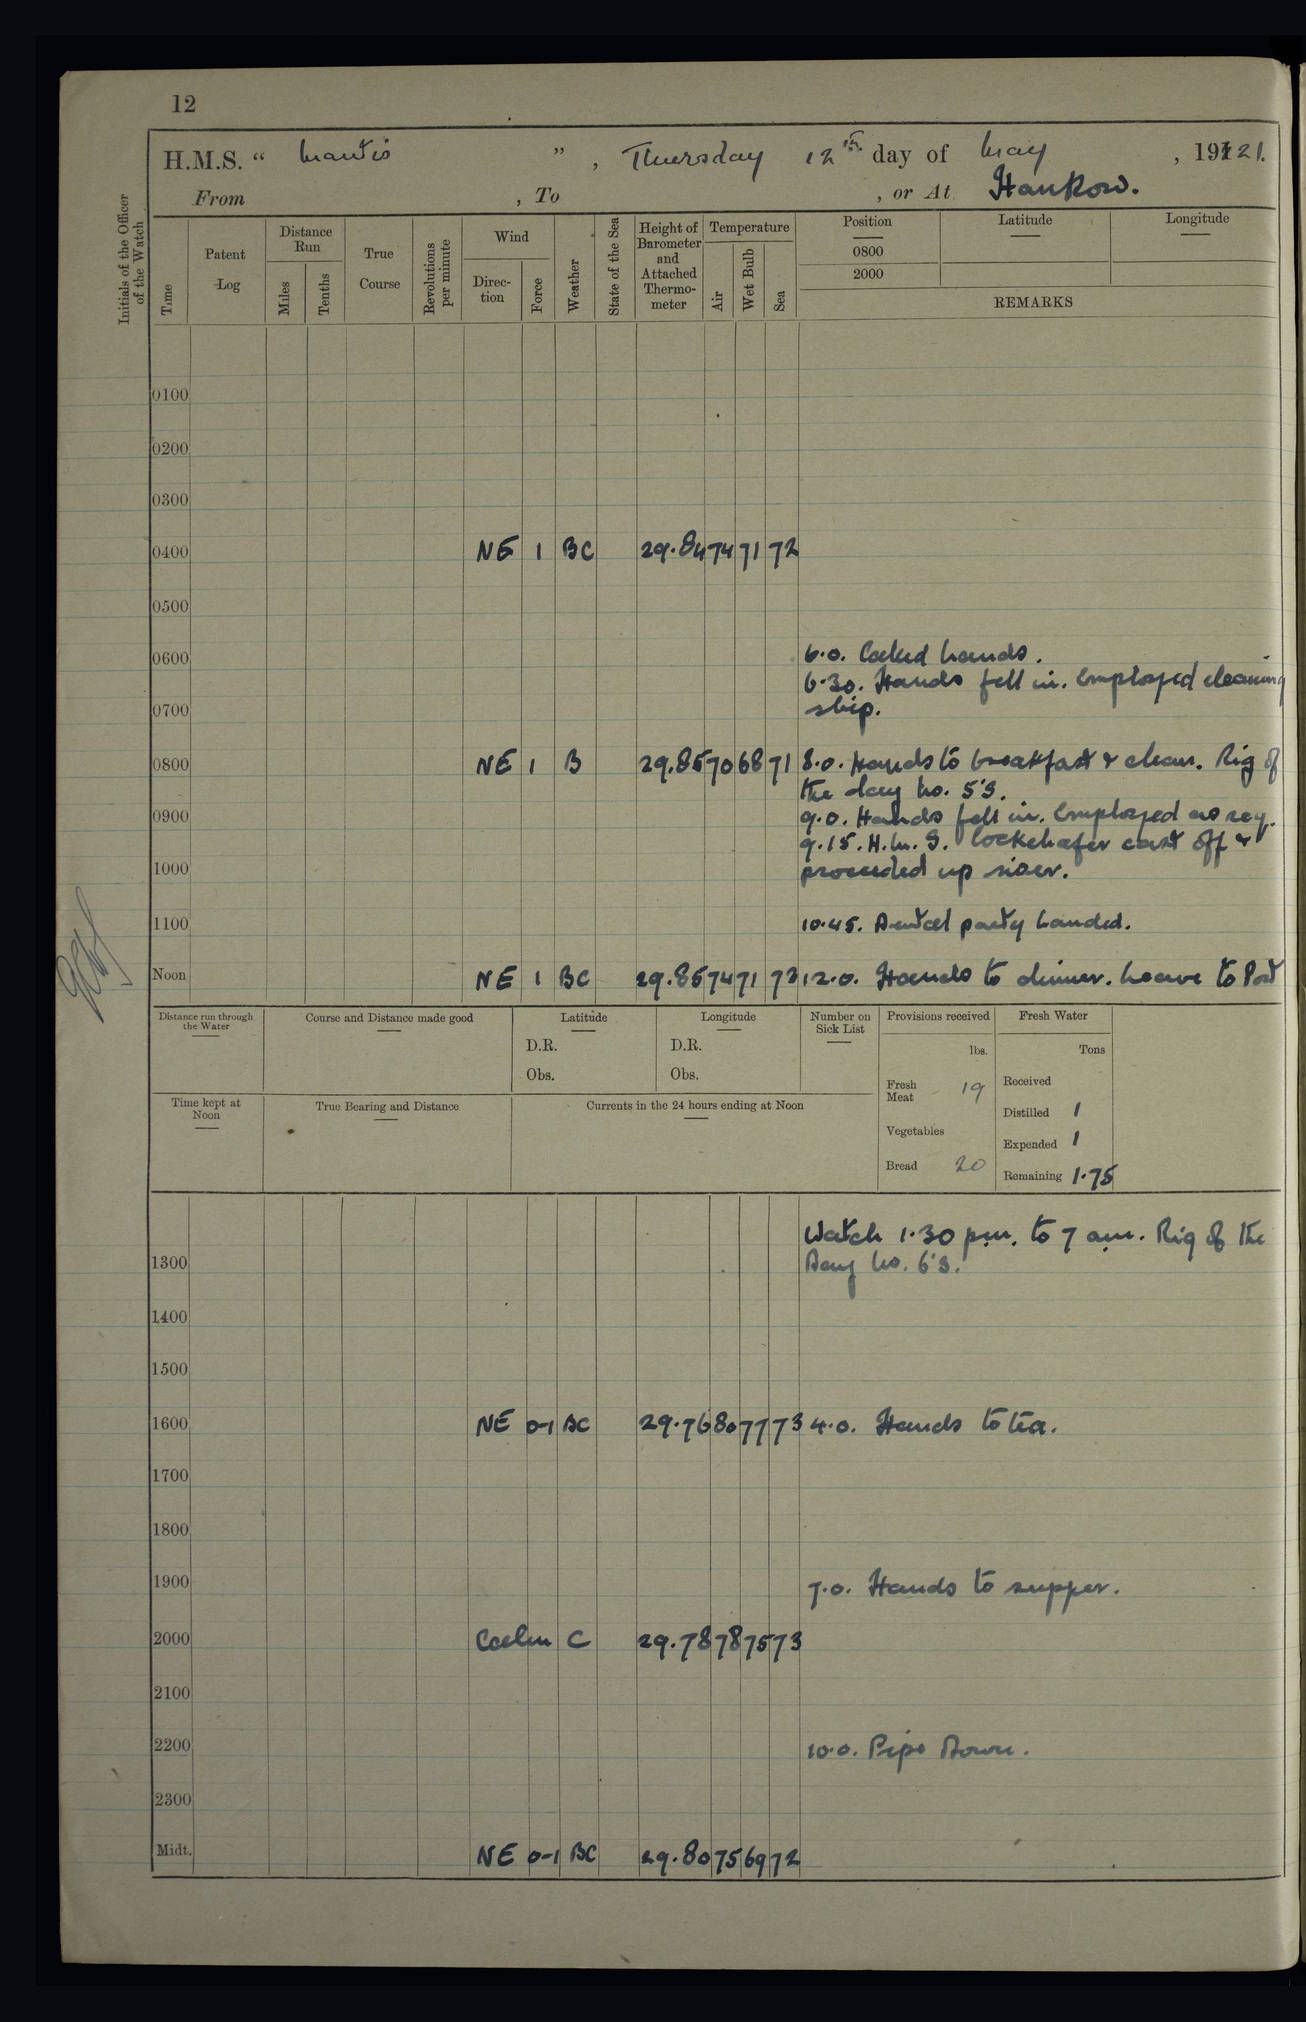 12
H.M.S. “ Mantis ” , Thursday 12th day of May , 1921.
From , To , or At Hankow.
Initials of the Officer of the Watch
Time
Patent Log
Distance Run
Miles
Tenths
True Course
Revolutions per minute
Wind
Direction
Force
Weather
State of the Sea
Height of Barometer and Attached Thermometer
Temperature
Air
Wet Bulb
Sea
Position Latitude Longitude
0800
2000
REMARKS
0100
0200
0300
0400 NE 1 BC 29.84 74 71 72
0500
0600 6.0. Called hands.
6.30. Hands fell in. Employed cleaning
0700 ship.
0800 NE 1 B 29.85 70 68 71 8.0. Hands to breakfast & clean. Rig of
the day No. 5's.
0900 9.0. Hands fell in. Employed as req.
9.15. H.M.S. Cockchafer cast off &
1000 proceeded up river.
1100 10.45. Dental party landed.
Noon NE 1 BC 29.85 74 71 73 12.0. Hands to dinner. Leave to Port
Distance run through the Water
Course and Distance made good
Latitude
D.R.
Obs.
Longitude
D.R.
Obs.
Number on Sick List
Provisions received
lbs.
Fresh Meat 19
Vegetables
Bread 20
Fresh Water
Tons
Received
Distilled 1
Expended 1
Remaining 1.75
Time kept at Noon
True Bearing and Distance
Currents in the 24 hours ending at Noon
Watch 1.30 pm. to 7 am. Rig of the
1300 Day No. 6's.
1400
1500
1600 NE 0-1 BC 29.76 80 77 73 4.0. Hands to tea.
1700
1800
1900 7.0. Hands to supper.
2000 Calm C 29.78 78 75 73
2100
2200 10.0. Pipe Down.
2300
Midt. NE 0-1 BC 29.80 75 69 72